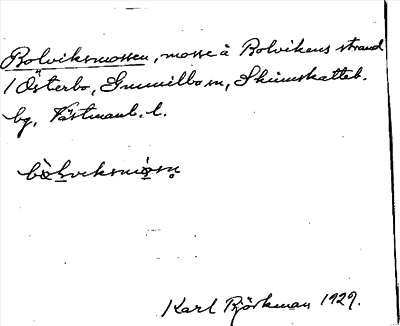 Bolviksmossen, mosse å Bolvikens strand
i Österbo, Gunnilbo sn, Skinnskatteb.
bg, Västmanl. l.
Karl Björkman 1929.